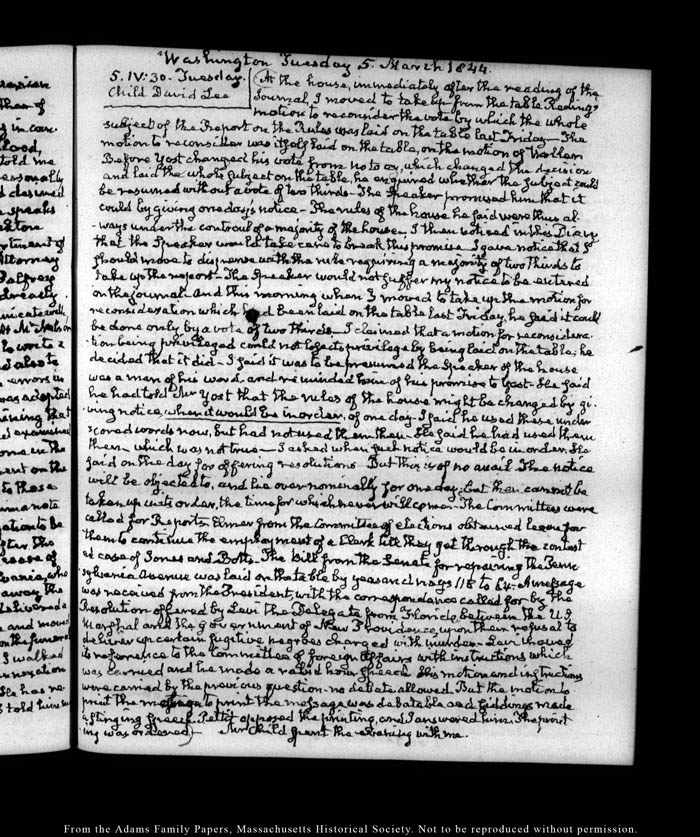 Washington Tuesday 5. March 1844.
5. IV:30. Tuesday.
Child David Lee
At the house, immediately after the reading of the
Journal, I moved to take up from the table
motion to reconsider the vote by which the whole
subject of the Report on the Rules was laid on the table last Friday — The
motion to reconsider was itself laid on the table, on the motion of
Before Yost changed his vote from no to ay, which changed the decision
and laid the whole subject on the table, he enquired whether the subject could
be resumed without a vote of two thirds — The Speaker promised him that it
could by giving one day's notice — The rules of the house he said were thus al
-ways under the controul of a majority of the house. I then noticed in this Diary
that the Speaker would take care to break this promise I gave notice that I
should move to dispense with the rule requiring a majority of two thirds to
take up the report — The Speaker would not suffer my notice to be entered
on the journal — And this morning when I moved to take up the motion for
reconsideration which had been laid on the table last Friday, he said it could
be done only by a vote of two thirds — I claimed that a motion for reconsidera
-tion being privileged could not lose its privilege by being laid on the table; he
decided that it did — I said it was to be presumed the Speaker of the house
was a man of his word, and reminded him of his promise to Yost — He said
he had told Mr Yost that the rules of the house might be changed by gi
-ving notice, when it would be in order, of one day — I said he used these under
scored words now, but had not used them then — He said he had used them
then, which was not true — I asked when such notice would be in order. He
said on the day for offering resolutions — But this is of no avail The notice
will be objected to, and lie over nominally for one day, but then cannot be
taken up in its order, the time for which never will come — The Committees were
called for Reports Elmer from the Committee of elections obtained leave for
them to continue the employment of a Clerk till they get through the contest
ed case of Jones and Botts — The bill from the Senate for repairing the Penn
sylvania Avenue was laid on the table by yeas and nays 118 to 64. A message
was received from the President, with the correspondence called for by the
Resolution offered by Levi the Delegate from Florida between the U.S.
Marshal and the Government of New Providence, upon their refusal to
deliver up certain fugitive negroes charged with murder — Levi moved
its reference to the Committee of foreign Affairs with instructions which
was carried and he made a rabid hour speech His motion and instructions
were carried by the previous question — no debate allowed. But the motion to
print the message was debatable and Giddings made
a stinging speech. Pettit opposed the printing, and I answered him. The print
ing was ordered — Mr Child spent the evening with me.
From the Adams Family Papers, Massachusetts Historical Society. Not to be reproduced without permission.